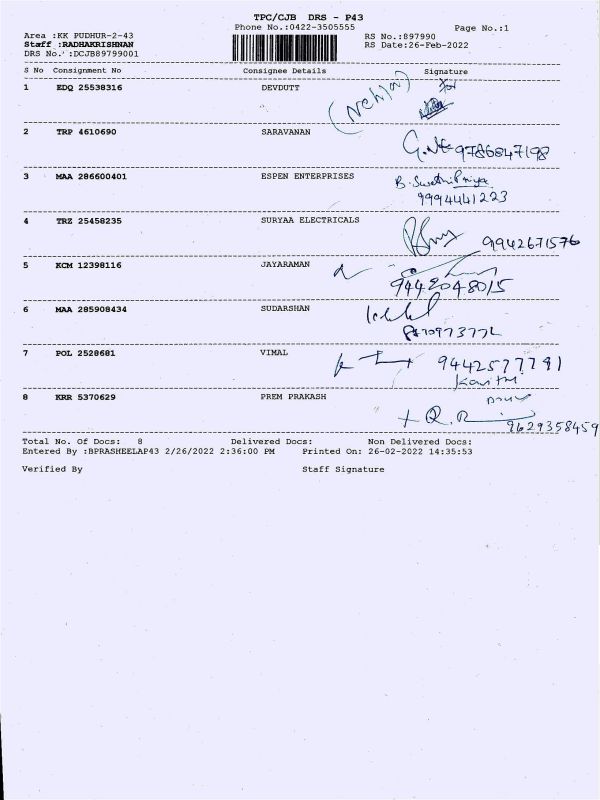 TPC/CJB DRS - P43
Phone No.:0422-3505555
Page No.:1
Area :KK PUDHUR-2-43
Staff :RADHAKRISHNAN
DRS No. :DCJB89799001
RS No.:897990
RS Date:26-Feb-2022
S No Consignment No Consignee Details Signature
1 EDQ 25538316 DEVDUTT
for
2 TRP 4610690 SARAVANAN
9786847198
3 MAA 286600401 ESPEN ENTERPRISES
B. Swathi Priya
9994441223
4 TRZ 25458235 SURYAA ELECTRICALS
9942671576
5 KCM 12398116 JAYARAMAN
9442048015
6 MAA 285908434 SUDARSHAN
7 POL 2528681 VIMAL
9442577791
8 KRR 5370629 PREM PRAKASH
9629358459
Total No. Of Docs: 8 Delivered Docs: Non Delivered Docs:
Entered By :BPRASHEELAP43 2/26/2022 2:36:00 PM Printed On: 26-02-2022 14:35:53
Verified By Staff Signature